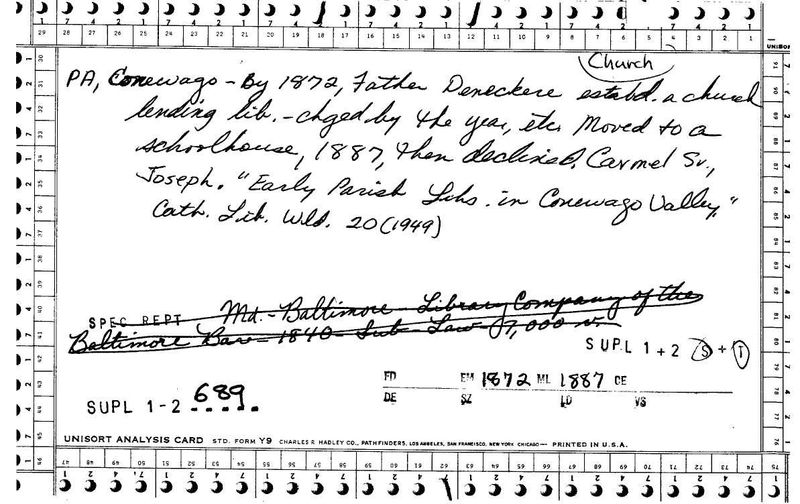 29 28 27 26 25 24 23 22 21 20 19 18 17 16 15 14 13 12 11 10 9 8 7 6 5 4 3 2 1
Church
PA, Conewago - By 1872, Father Deneckere estabd. a church
lending lib. - chged by the year, etc. Moved to a
schoolhouse, 1887, then declined. Carmel Sr.,
Joseph. "Early Parish Libs. in Conewago Valley,"
Cath. Lib. Wld. 20 (1949)
SPEC REPT Md. - Baltimore - Library Company of the
Baltimore Bar - 1840 - Sub - Law - 7,000 v.
SUPL 1 + 2 S + T
FD EM 1872 ML 1887 CE
DE SZ LD VS
SUPL 1-2 689
UNISORT ANALYSIS CARD STD. FORM Y9 CHARLES R. HADLEY CO., PATHFINDERS, LOS ANGELES, SAN FRANCISCO, NEW YORK CHICAGO — PRINTED IN U.S.A.
47 48 49 50 51 52 53 54 55 56 57 58 59 60 61 62 63 64 65 66 67 68 69 70 71 72 73 74 75